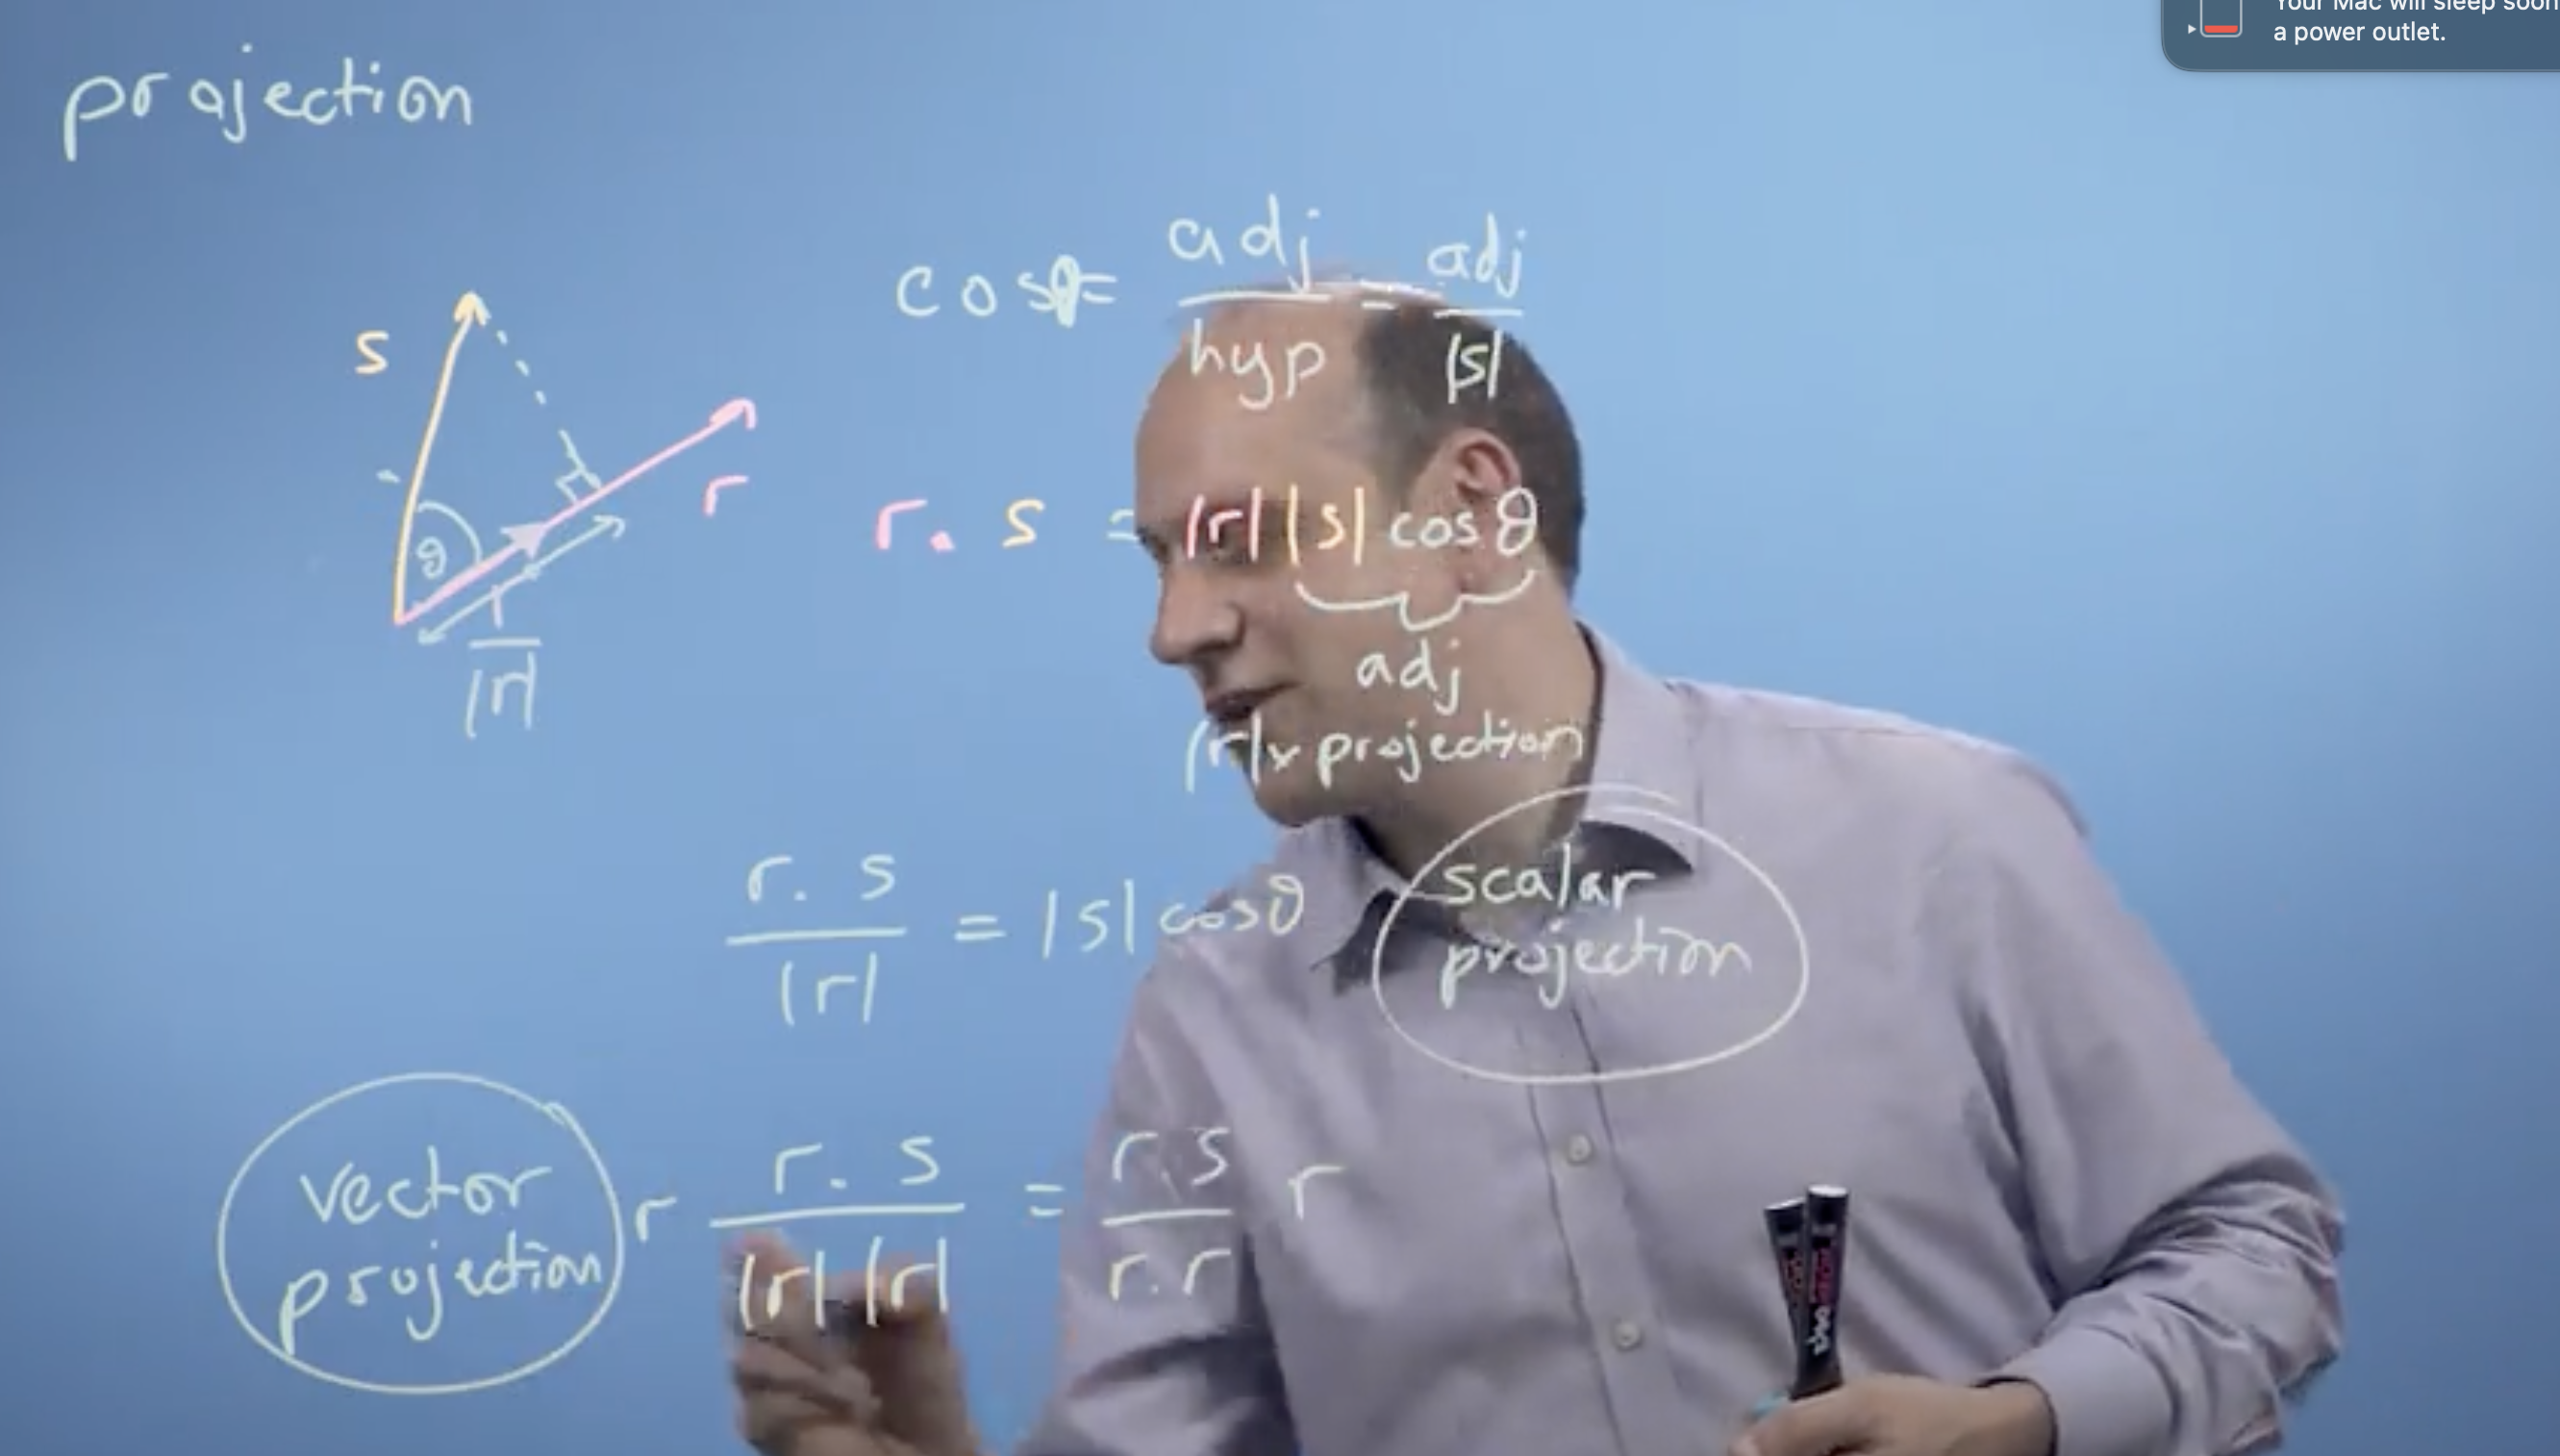 Your Mac will sleep soon
a power outlet.
projection
cosθ = adj/hyp = adj/|s|
s
r
θ
r/|r|
r. s = |r||s| cos θ
adj
|r| x projection
r. s/|r| = |s| cosθ
scalar
projection
vector
projection
r r. s/|r||r| = r.s/r.r r